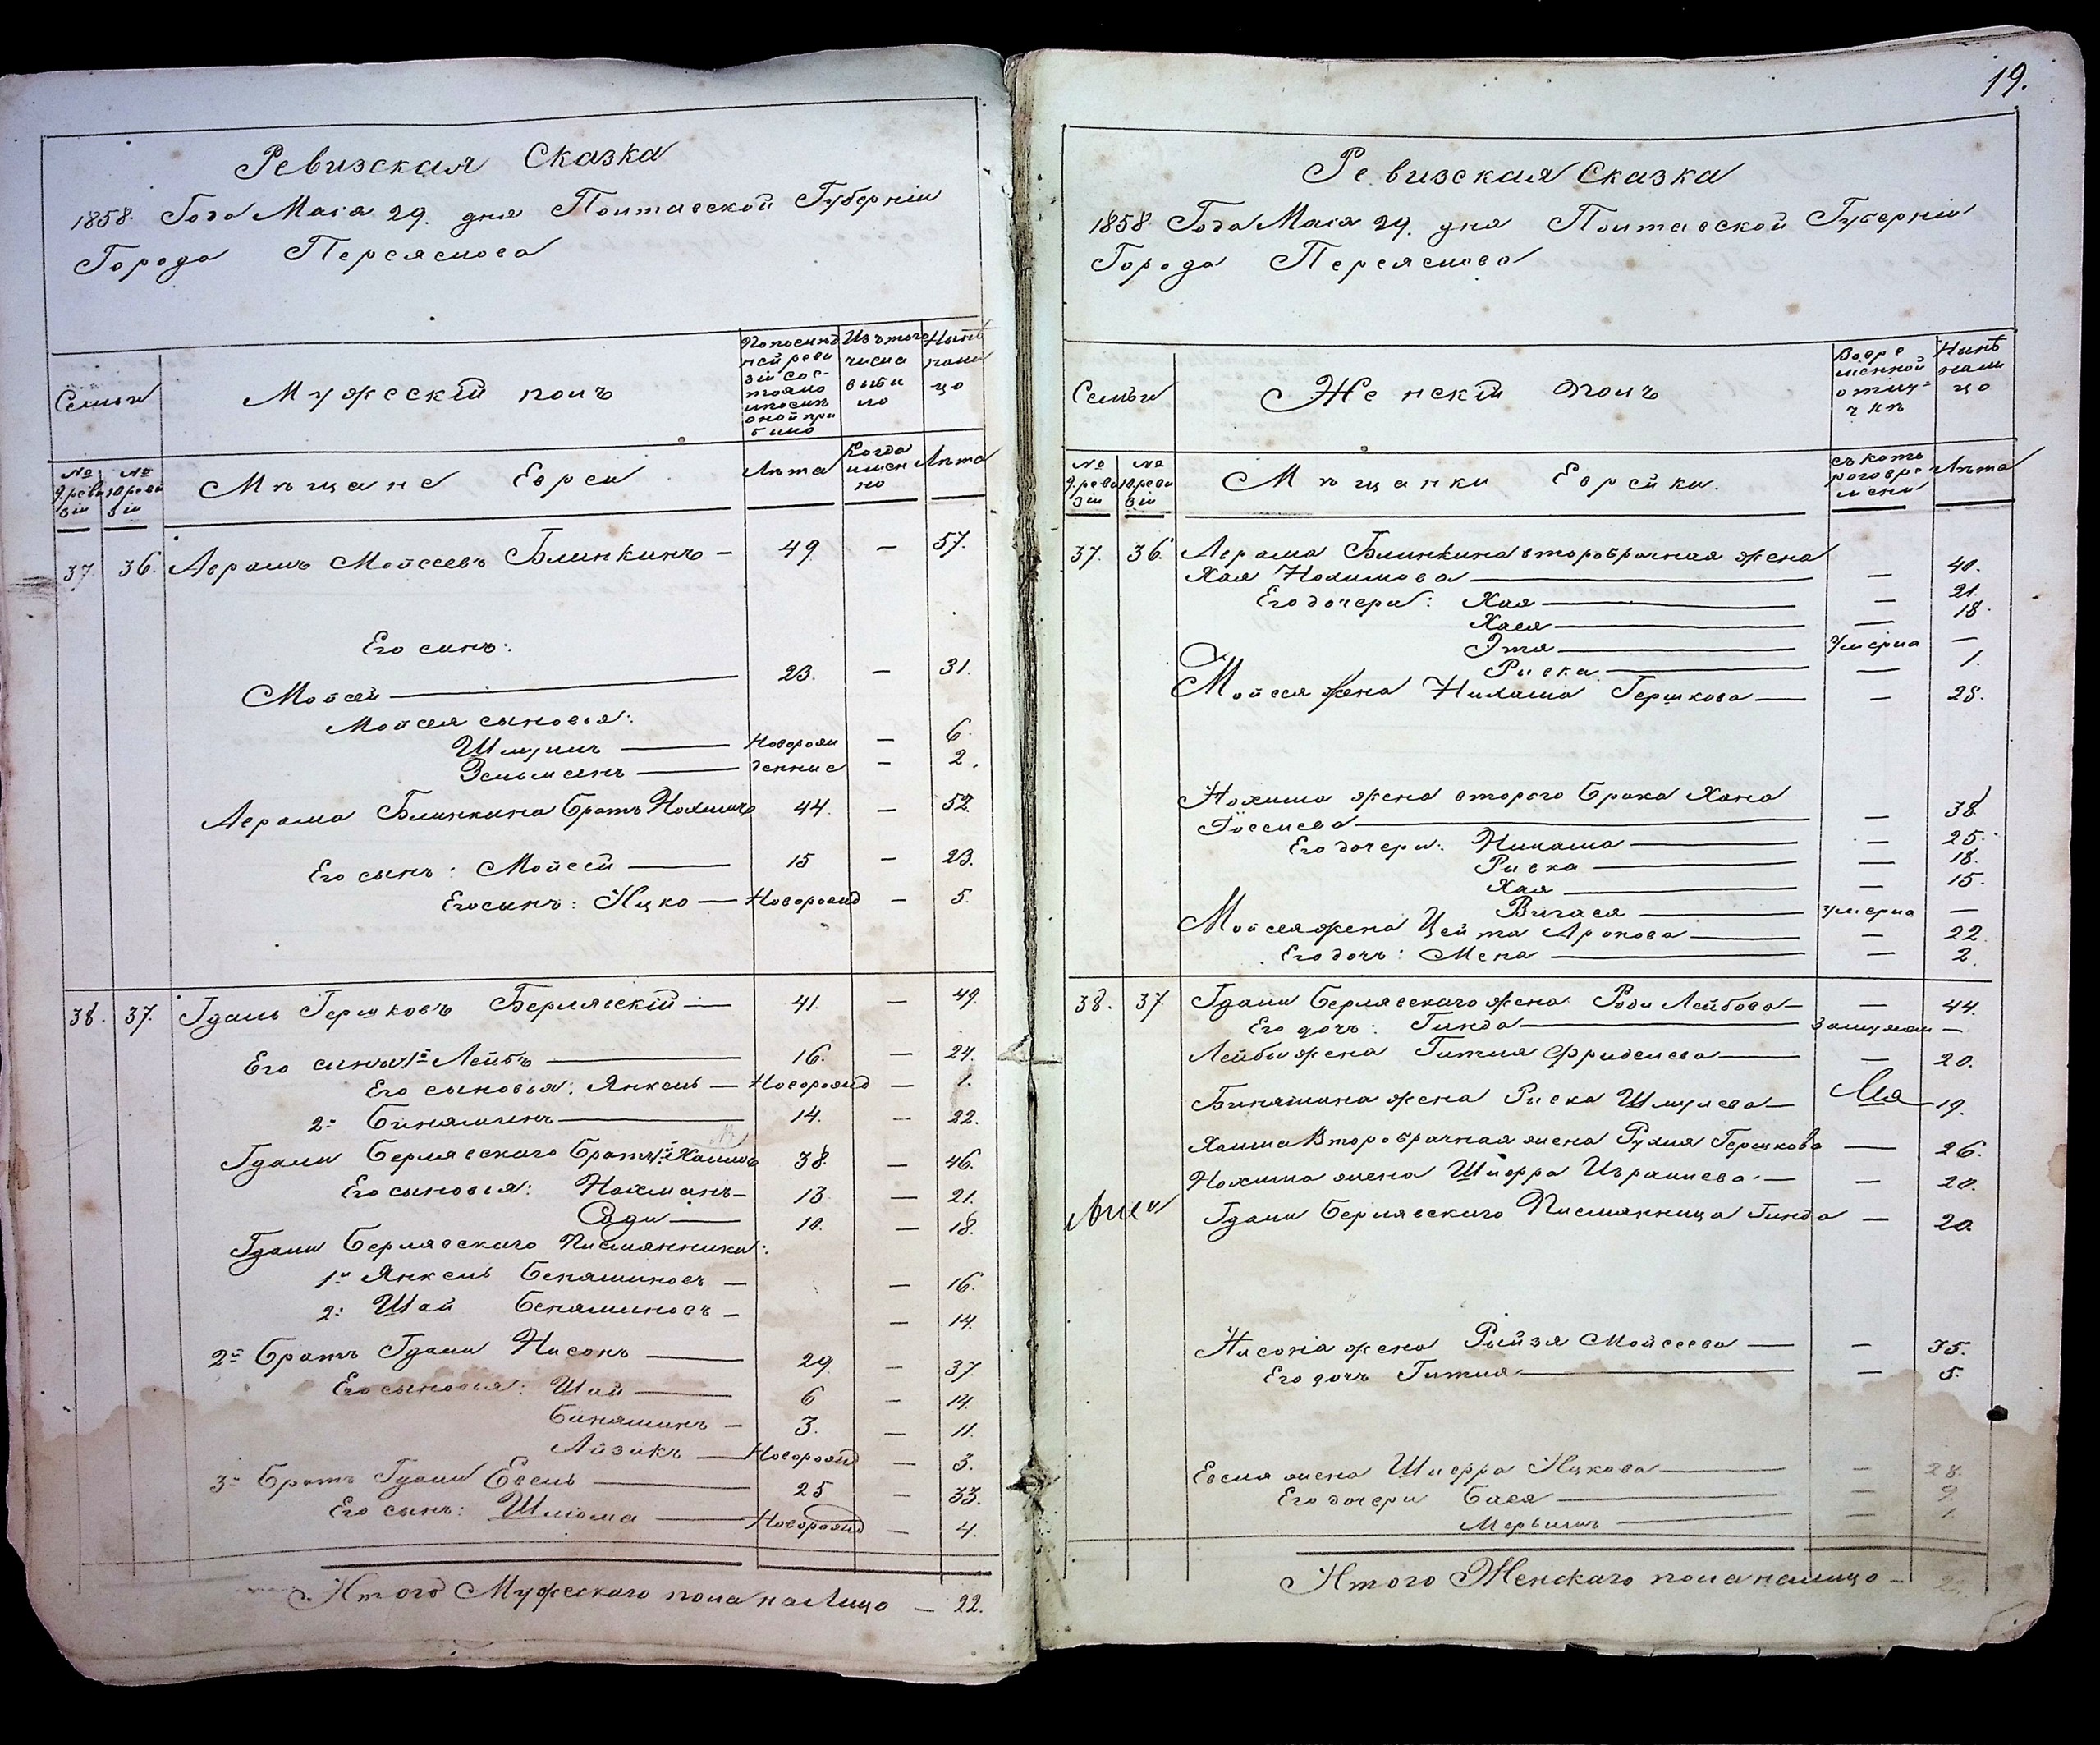 Ревизская Сказка
1858. Года Маія 29. дня Полтавской Губерніи
Города Переяслова
Семьи
Мужескій полъ
По послѣд
ней реви
зіи сос-
тояло
и послѣ
оной при
было
Изъ того
числа
выбы
ло
Нынѣ
нали
цо
№ 9. реви зіи
№ 10 реви зіи
Мѣщане Евреи
Лѣта
Когда
имен
но
Лѣта
37. 36. Аврамъ Мойсеевъ Блинкинъ — 49 — 57.
Его сынъ:
Мойсей — 23. — 31.
Мойсея сыновья:
Шмуиль — Новорож — 6.
Зельменъ — денные — 2.
Аврама Блинкина братъ Нохимъ 44. — 52.
Его сынъ: Мойсей — 15 — 23.
Его сынъ: Ицко — Новорожд — 5.
38. 37. Гдаль Гершковъ Берлявскій — 41. — 49.
Его сыны 1й Лейбъ — 16. — 24.
Его сыновья: Янкель — Новорожд — 1.
2й Биняминъ — 14. — 22.
Гдали Берлявскаго братъ 1й Хаимъ 38. — 46.
Его сыновья: Нахманъ — 13 — 21.
Сади — 10. — 18.
Гдали Берлявскаго Писмянники:
1й Янкель Беняминовъ — — 16.
2й Шай Беняминовъ — — 14.
2й Братъ Гдали Нисонъ — 29. — 37.
Его сыновья: Шай — 6 — 14.
Биняминъ — 3. — 11.
Айзикъ — Новорожд — 3.
3й Братъ Гдали Евель — 25 — 33.
Его сынъ: Шлома — Новорожд — 4.
Итого Мужескаго пола на Лицо — 22.
19.
Ревизская Сказка
1858. Года Маія 29. дня Полтавской Губерніи
Города Переяслова
Семьи
Женскій полъ
Во вре
менной
отлу-
чкѣ
Нынѣ
нали
цо
№ 9. реви зіи
№ 10. реви зіи
Мѣщанки Еврейки.
съ кото
раго вре
мени
Лѣта
37. 36. Аврама Блинкина второбрачная жена
Хая Нохимова — — 40.
Его дочери: Хая — — 21.
Хася — — 18.
Этя — Умерла —
Ривка — — 1.
Мойсея жена Нихама Гершкова — — 28.
Нохима жена второго брака Хана
Іосиева — — 38.
Его дочери: Нихама — — 25.
Ривка — — 18.
Хая — — 15.
Вигася — умерла —
Мойсея жена Цейта Аронова — — 22.
Его дочь: Мена — — 2.
38. 37 Гдали Берлявскаго жена Роди Лейбова — — 44.
Его дочь: Гинда — Замужем —
Лейбы жена Гитля Фридлиева — — 20.
Бинямина жена Ривка Шмулева — 19.
Хаима Второбрачная жена Рухля Гершкова — 26.
Нохима жена Шифра Израилева — — 20.
Гдали Берлявскаго Писмянница Гинда — 20.
Нисона жена Рыйзя Мойсеева — — 35.
Его дочь Гитля — — 5.
Евеля жена Шифра Ицкова — — 28.
Его дочери Бася — — 9.
Мерьимъ — — 1
Итого Женскаго пола налицо —